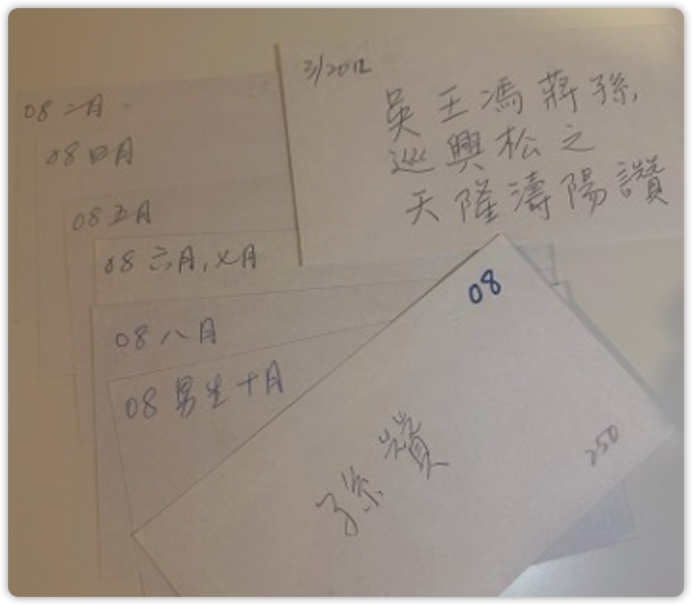 3/2012
吳王馮蔣孫
巡興松之
天隆濤陽讚
08 二月
08 四月
08 五月
08 六月,七月
08 八月
08 男生十月
08
孫讚
250